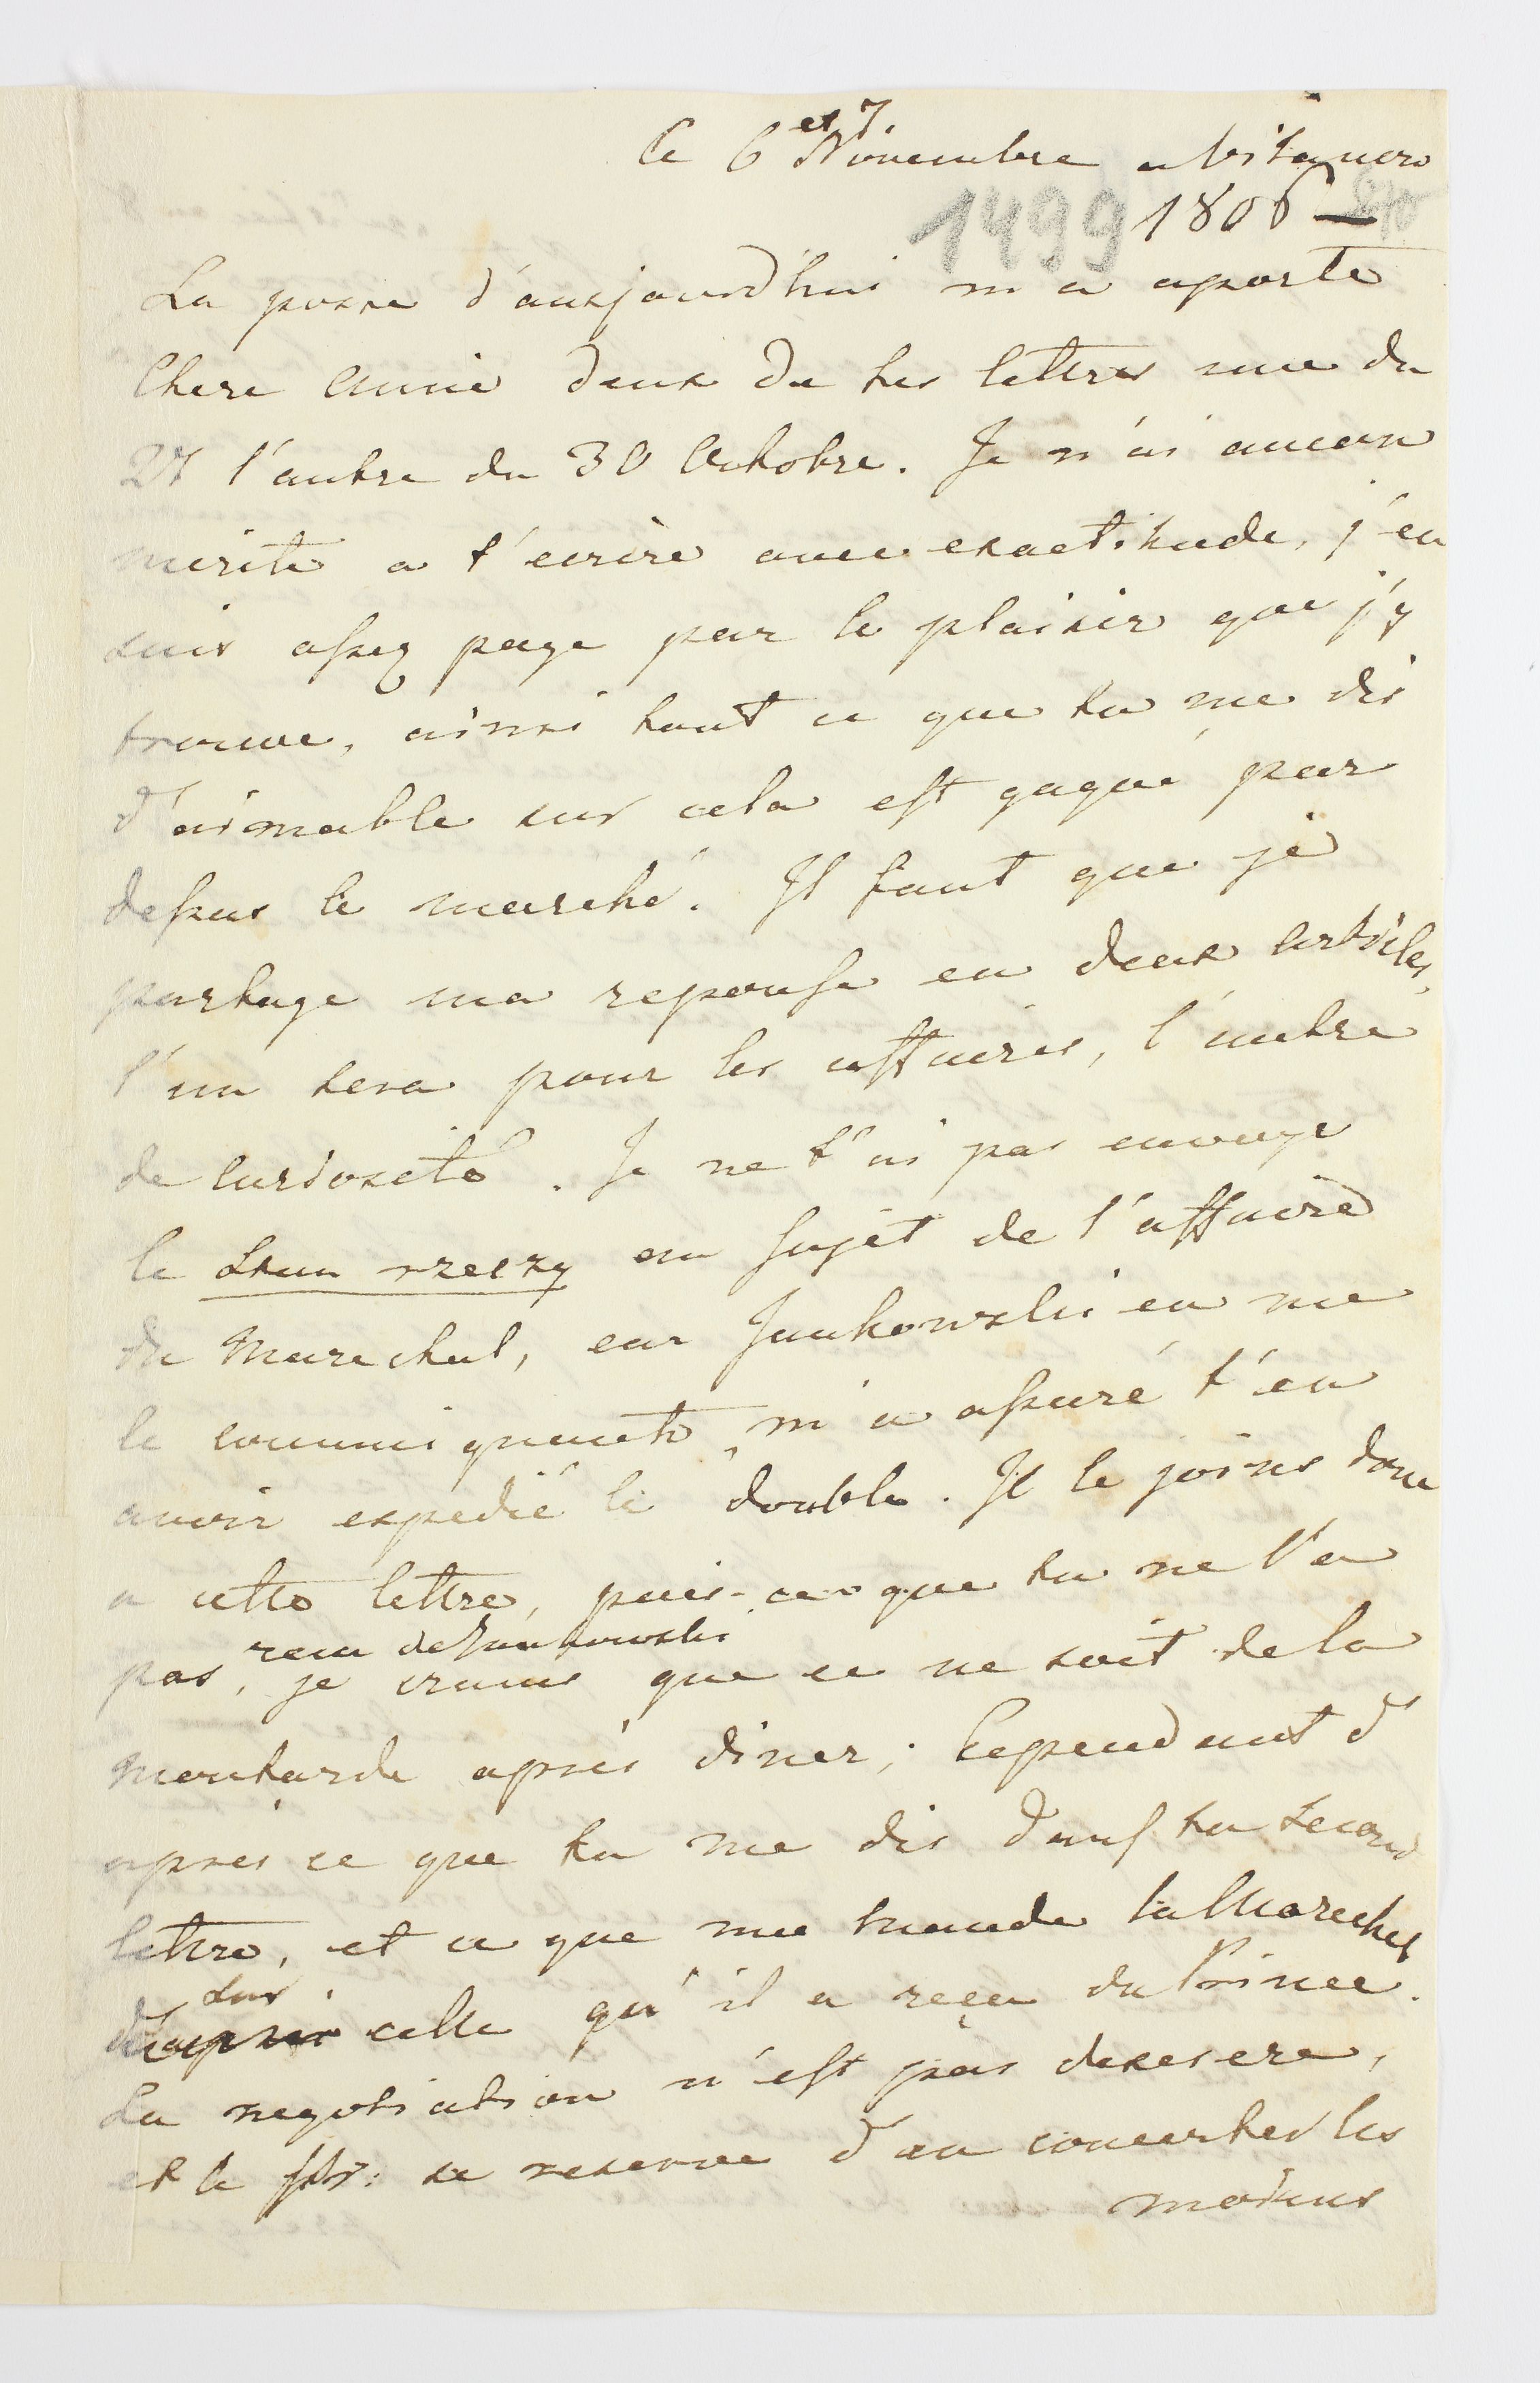 Ce 6 et 7. Novembre a Vilanov
1499 1806
La poste d'aujourd'hui m'a aporté
Chere Amie deux de tes lettres une du
27 l'autre du 30 Octobre. Je n'ai aucun
merite a t'ecrire avec exactitude, j'en
suis assez payé par le plaisir que j'y
trouve, ainsi tout ce que tu me dis
d'aimable sur cela est gagné par
dessus le marché. Il faut que je
partage ma reponse en deux articles,
l'un sera pour les affaires, l'autre
de curiosité. Je ne t'ai pas envoyé
le Stan rzeczy au sujet de l'affaire
du Marechal, car Jankowski en me
le communiquant, m'a assuré t'en
avoir expedié le double. Je le joins donc
a cette lettre, puis-ce que tu ne l'a
pas reçu de Jankowski, je crains que ce ne soit de la
moutarde après diner; Cependant d'
apres ce que tu me dis dans ta second
lettre, et ce que me mande la Marechal
d'après sur celle qu'il a reçu du Prince.
La negotiation n'est pas deseseré,
et le Pr: se reserve d'en concerter les
moiens